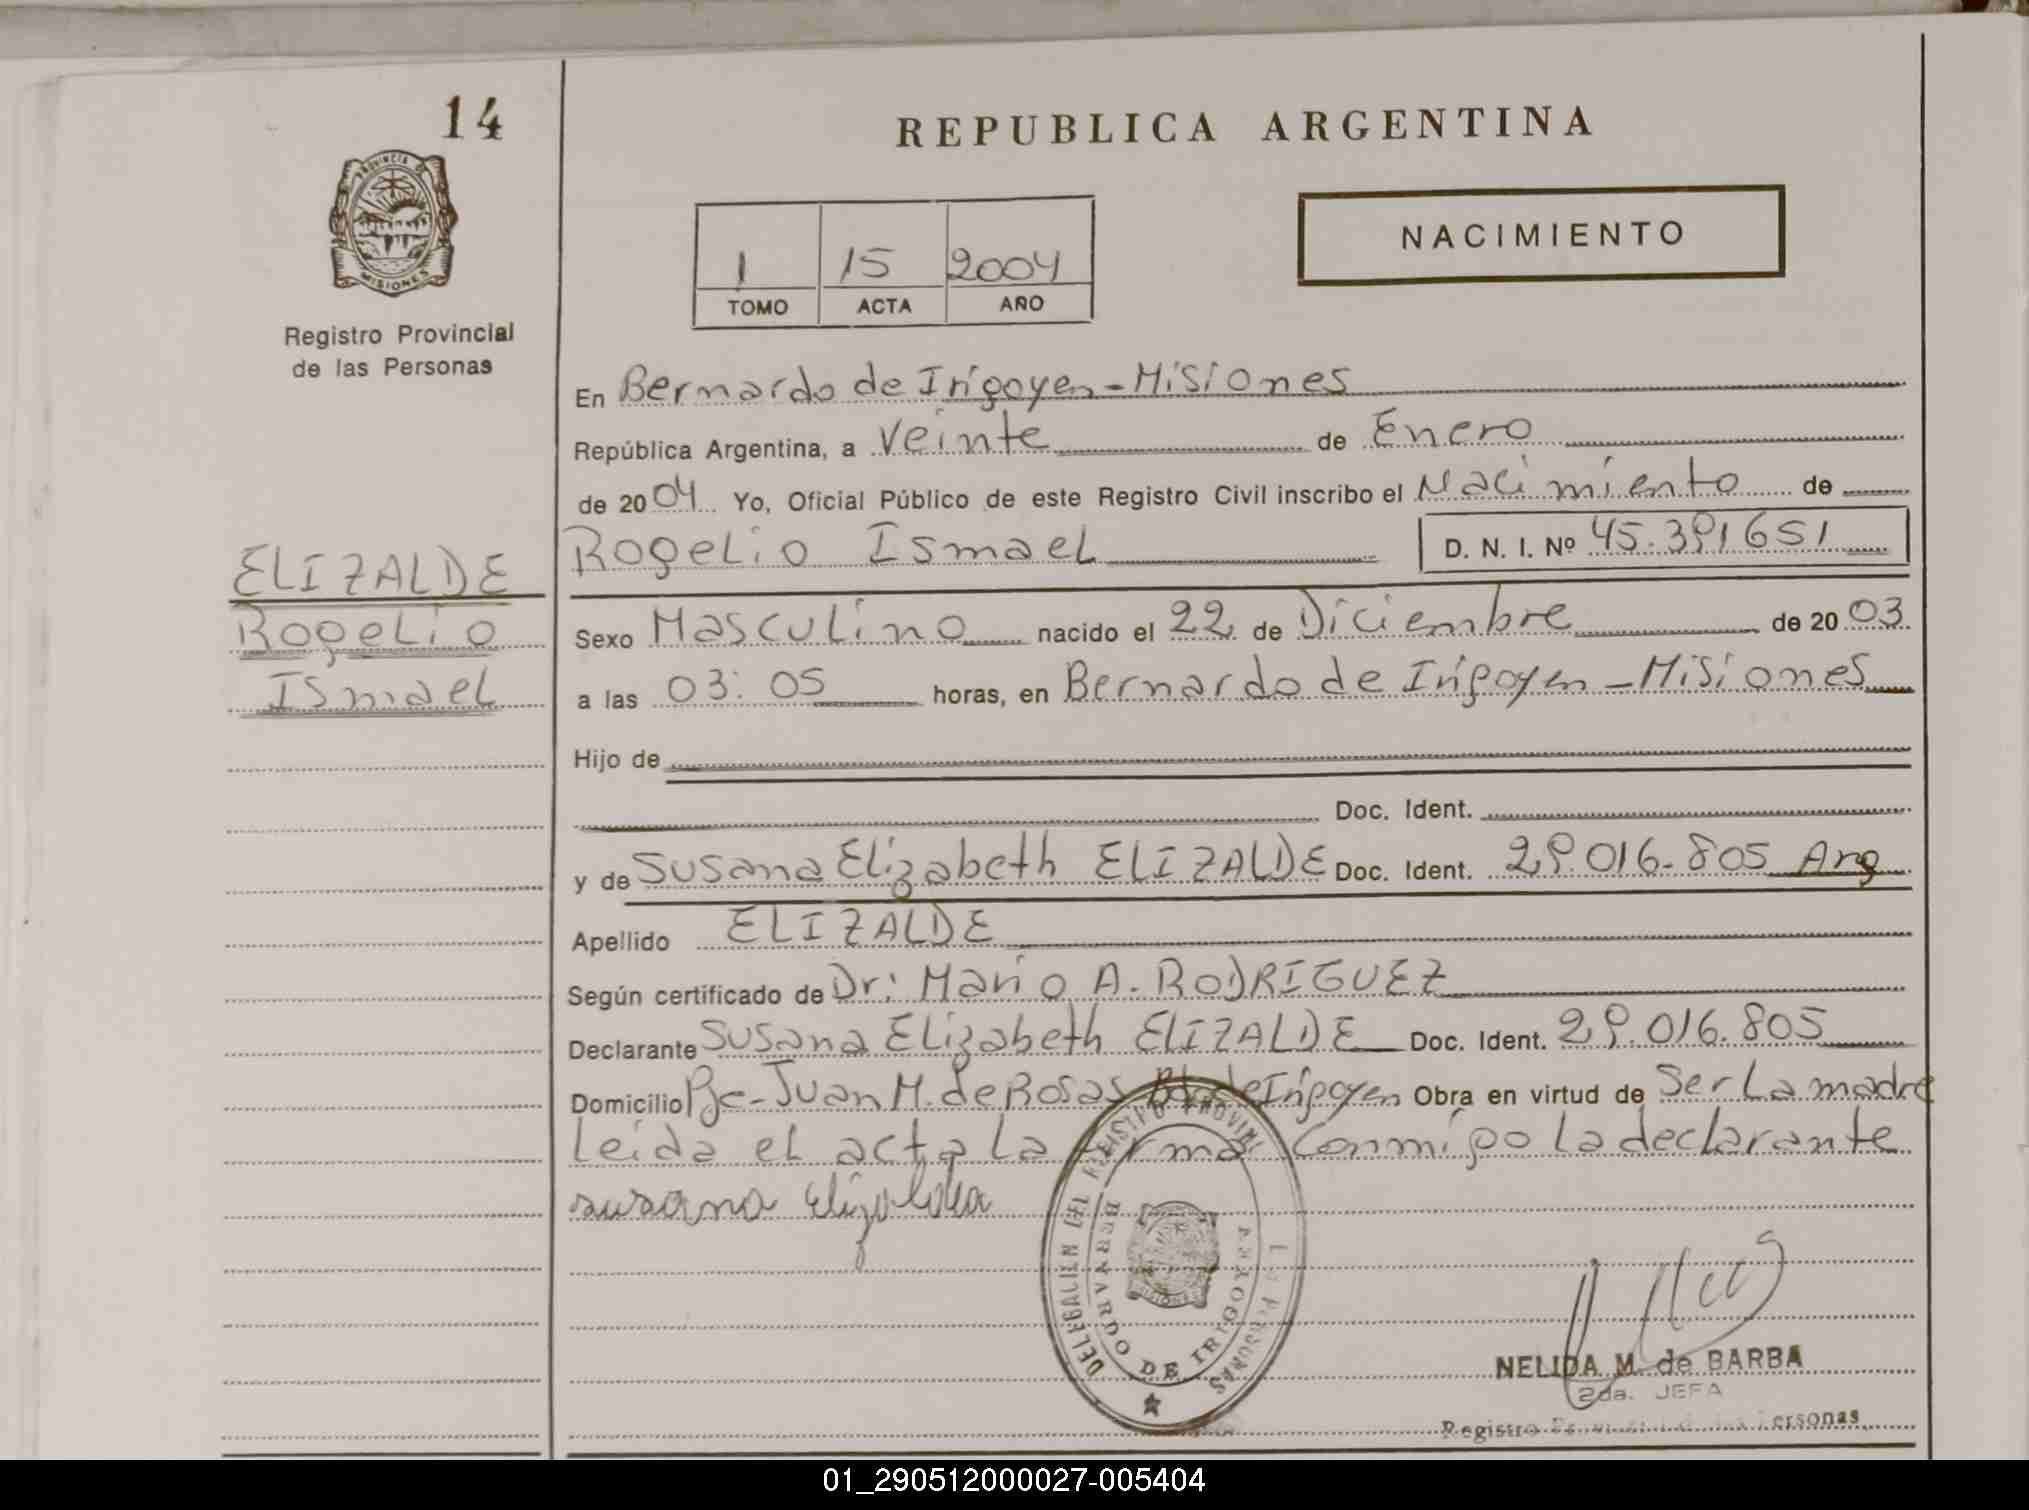 14
PROVINCIA DE
MISIONES
Registro Provincial
de las Personas
REPUBLICA ARGENTINA
1 15 2004
TOMO ACTA AÑO
NACIMIENTO
En Bernardo de Irigoyen - Misiones
República Argentina, a Veinte de Enero
de 2004 Yo, Oficial Público de este Registro Civil inscribo el Nacimiento de
Rogelio Ismael D. N. I. Nº 45.391651
ELIZALDE
Rogelio
Ismael
Sexo Masculino nacido el 22 de Diciembre de 2003
a las 03:05 horas, en Bernardo de Irigoyen - Misiones
Hijo de
Doc. Ident.
y de Susana Elizabeth ELIZALDE Doc. Ident. 29.016.805 Arg
Apellido ELIZALDE
Según certificado de Dr: Mario A. RODRIGUEZ
Declarante Susana Elizabeth ELIZALDE Doc. Ident. 29.016.805
Domicilio Bc- Juan M. de Rosas Bdo de Irigoyen Obra en virtud de Ser La madre
Leida el acta La firma Conmigo La declarante
susana
DELEGACION DEL REGISTRO PROVINCIAL DE LAS PERSONAS
BERNARDO DE IRIGOYEN
MISIONES
NELIDA M. de BARBA
2da. JEFA
Registro Provincial de las Personas
01_290512000027-005404